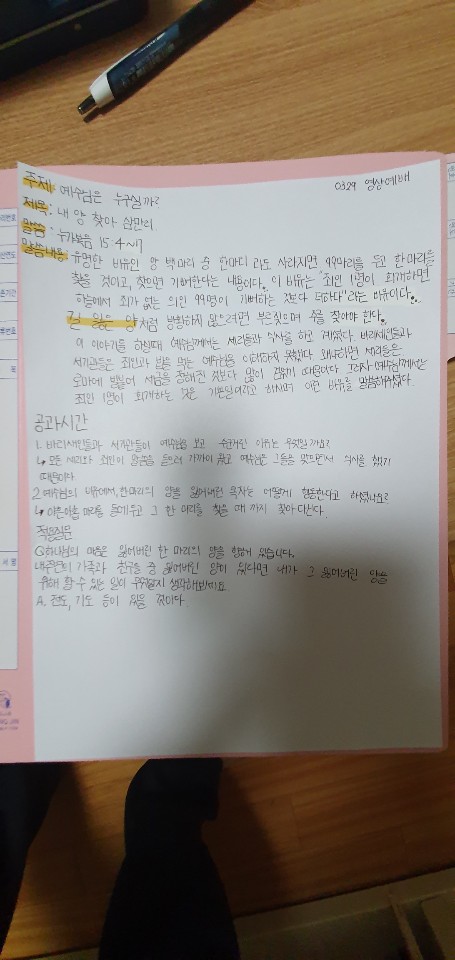 0329 영상예배
주제: 예수님은 누구실까?
제목: 내 양 찾아 삼만리
말씀: 누가복음 15:4~7
말씀내용: 유명한 비유인 양 백마리 중 한마리라도 사라지면 99마리를 두고 한마리를
찾을 것이고, 찾으면 기뻐한다는 내용이다. 이 비유는 "죄인 1명이 회개하면
하늘에서 죄가 없는 의인 99명이 기뻐하는 것보다 더하다"라는 비유이다.
길 잃은 양처럼 방황하지 않으려면 부르짖으며 주를 찾아야 한다.
이 이야기를 하실때 예수님께서는 세리들과 식사를 하고 계셨다. 바리새인들과
서기관들은 죄인과 밥을 먹는 예수님을 이해하지 못했다. 왜냐하면 세리들은
로마에 빌붙어 세금을 정해진 것보다 많이 걷었기 때문이다. 그러자 예수님께서는
죄인 1명이 회개하는 것은 기쁜일이라고 하시며 이런 비유를 말씀해주셨다.
공과시간
1. 바리새인들과 서기관들이 예수님을 보고 수군거린 이유는 무엇일까요?
↳ 모든 세리와 죄인이 말씀을 들으러 가까이 왔고 예수님은 그들을 맞으면서 식사를 했기
때문이다.
2. 예수님의 비유에서, 한마리의 양을 잃어버린 목자는 어떻게 행동한다고 하셨나요?
↳ 아흔아홉 마리를 들에 두고 그 한 마리를 찾을 때 까지 찾아다닌다.
적용질문
Q. 하나님의 마음은 잃어버린 한 마리의 양을 향해 있습니다.
내 주변의 가족과 친구들 중 잃어버린 양이 있다면 내가 그 잃어버린 양을
위해 할 수 있는 일이 무엇일지 생각해보세요.
A. 전도, 기도 등이 있을 것이다.